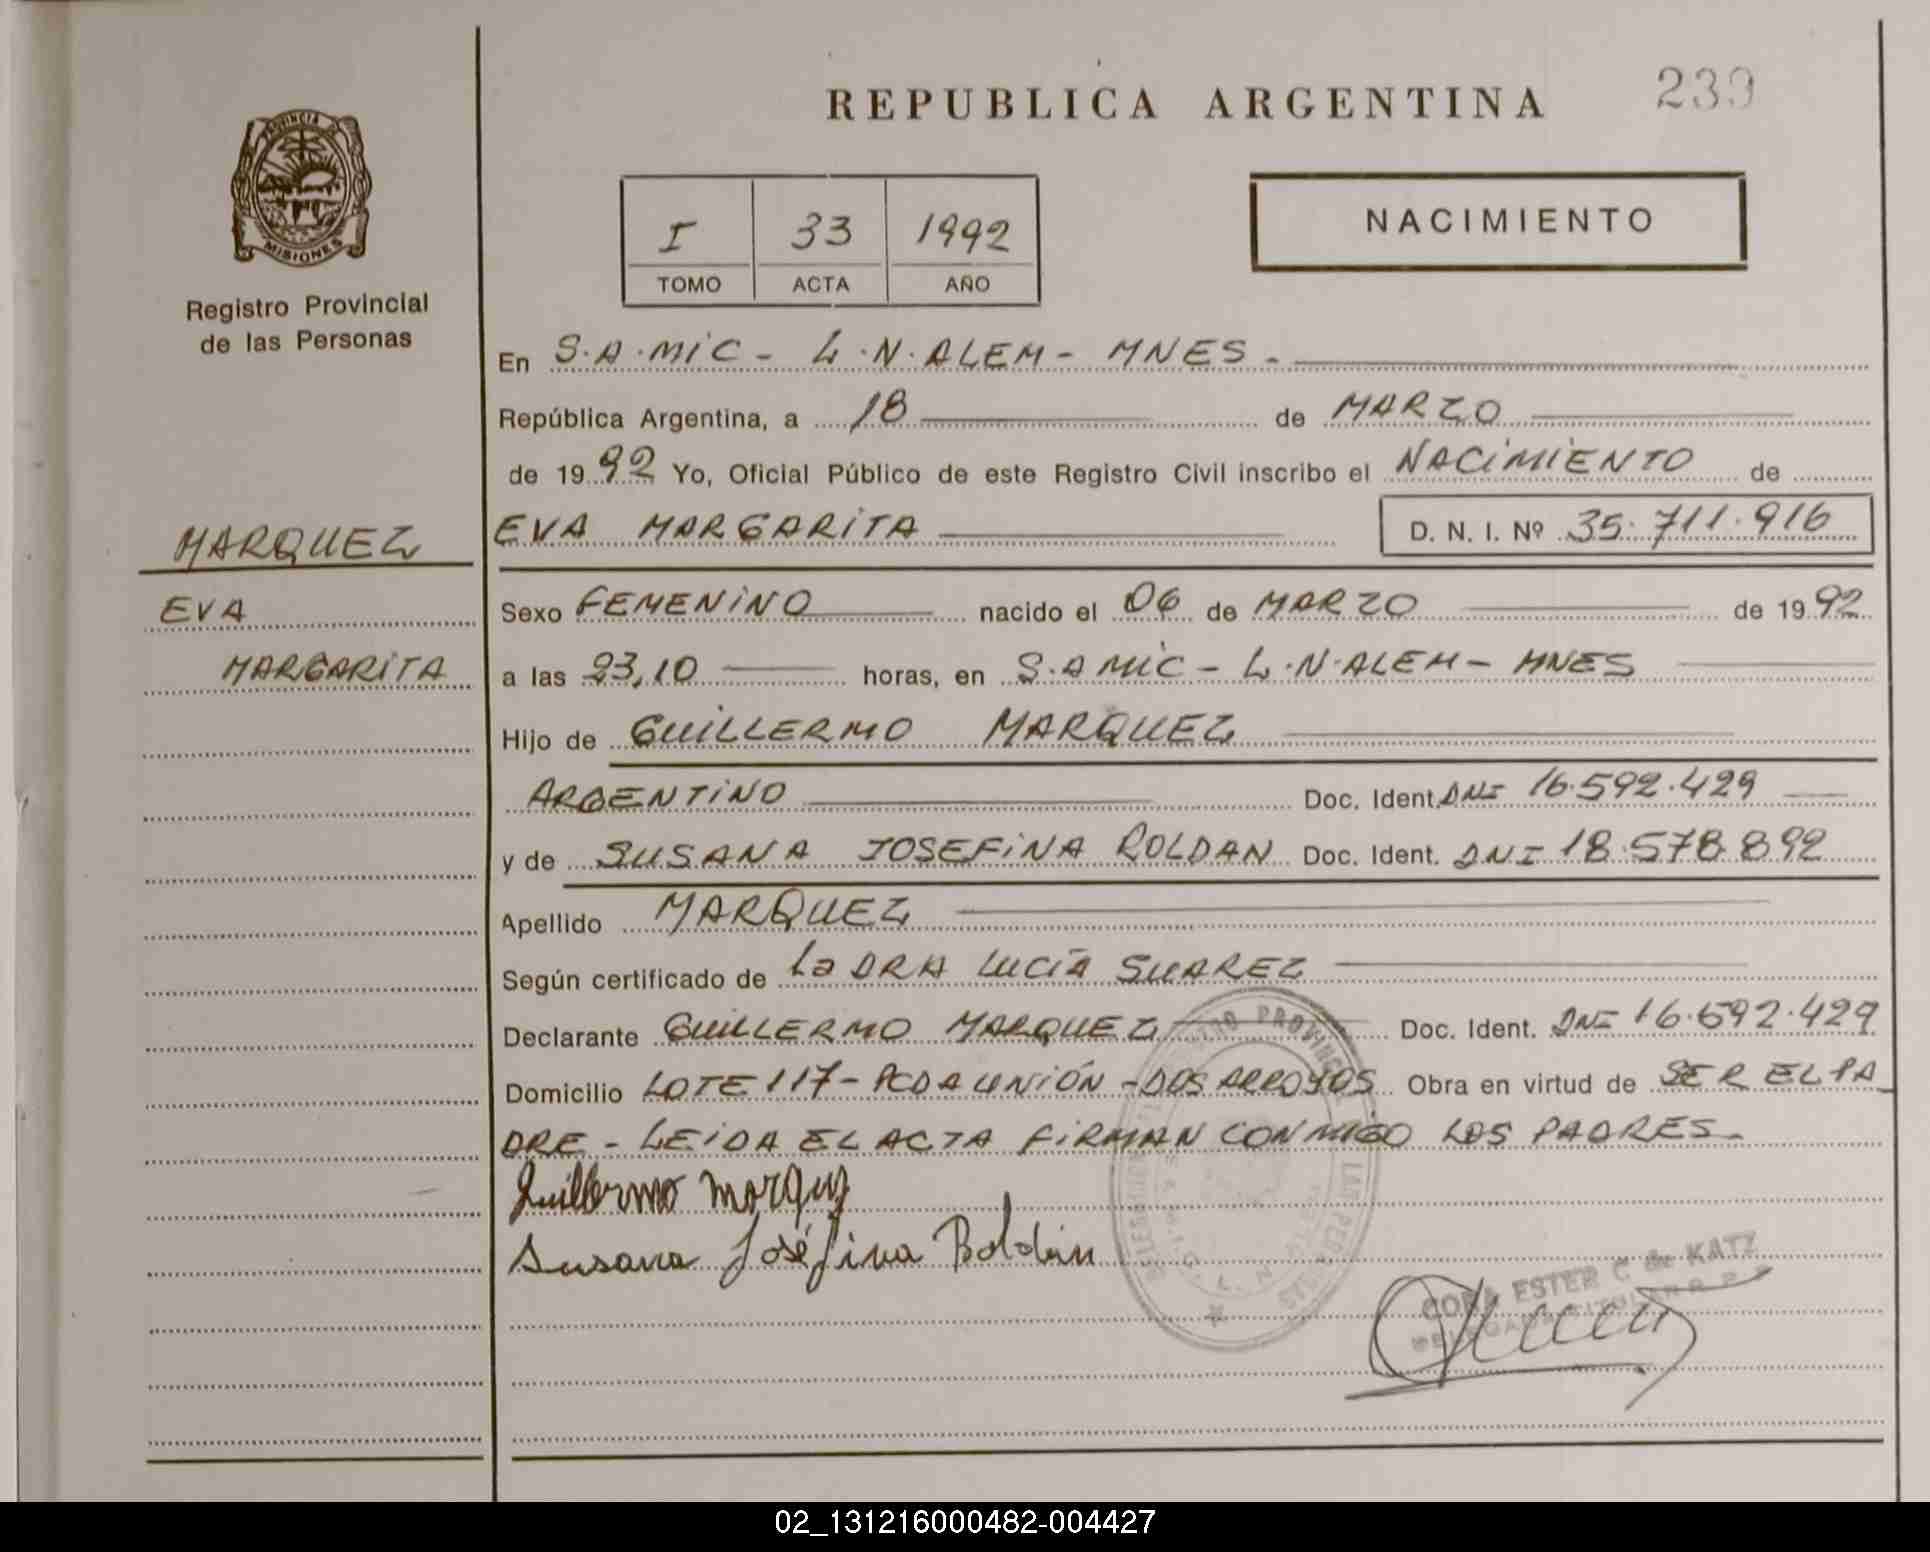 REPUBLICA ARGENTINA
239
PROVINCIA DE
MISIONES
Registro Provincial
de las Personas
I 33 1992
TOMO ACTA AÑO
NACIMIENTO
En S.A.MIC - L.N.ALEM - MNES -
República Argentina, a 18 de MARZO
de 1992 Yo, Oficial Público de este Registro Civil inscribo el NACIMIENTO de
MARQUEZ
EVA
MARGARITA
EVA MARGARITA D. N. I. Nº 35.711.916
Sexo FEMENINO nacido el 06 de MARZO de 1992
a las 23,10 horas, en S.A MIC - L.N.ALEM - MNES
Hijo de GUILLERMO MARQUEZ
ARGENTINO Doc. Ident. DNI 16.592.429
y de SUSANA JOSEFINA ROLDAN Doc. Ident. DNI 18.578.892
Apellido MARQUEZ
Según certificado de La DRA LUCÍA SUAREZ
Declarante GUILLERMO MARQUEZ Doc. Ident. DNI 16.592.429
Domicilio LOTE 117 - PCDA UNIÓN - DOS ARROYOS Obra en virtud de SER EL PA_
DRE - LEIDA EL ACTA FIRMAN CONMIGO LOS PADRES -
Guillermo Marquez
Susana Joséfina Roldán
ESTER C de KATZ
02_131216000482-004427